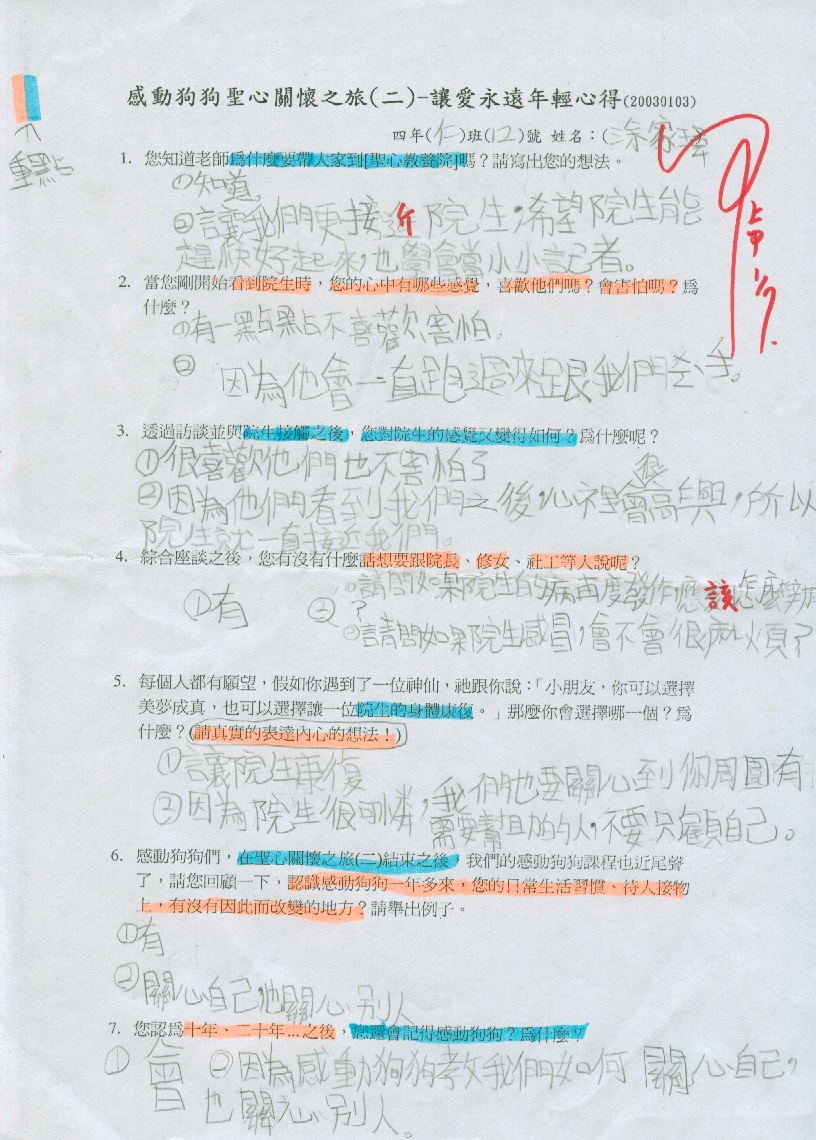 感動狗狗聖心關懷之旅(二)-讓愛永遠年輕心得(20030103)
四年(仁)班(12)號 姓名：(涂家瑋
重點
1. 您知道老師為什麼要帶大家到[聖心教養院]嗎？請寫出您的想法。
①知道。
②讓我們更接近院生，希望院生能
趕快好起來，也學會當小小記者。
2. 當您剛開始看到院生時，您的心中有哪些感覺，喜歡他們嗎？會害怕嗎？為
什麼？
①有一點點不喜歡、害怕。
②因為他會一直跑過來跟我們牽手。
3. 透過訪談並與院生接觸之後，您對院生的感覺又變得如何？為什麼呢？
①很喜歡他們也不害怕了
②因為他們看到我們之後，心裡會很高興，所以
院生就一直接近我們。
4. 綜合座談之後，您有沒有什麼話想要跟院長、修女、社工等人說呢？
①有 ② ①請問如果院生的病再度發作應該怎麼辦
？
②請問如果院生感冒，會不會很麻煩？
5. 每個人都有願望，假如你遇到了一位神仙，祂跟你說：「小朋友，你可以選擇
美夢成真，也可以選擇讓一位院生的身體康復。」那麼你會選擇哪一個？為
什麼？(請真實的表達內心的想法！)
①讓院生康復
②因為院生很可憐，我們也要關心到你周圍有
需要幫助的人，不要只顧自己。
6. 感動狗狗們，在聖心關懷之旅(二)結束之後，我們的感動狗狗課程也近尾聲
了，請您回顧一下，認識感動狗狗一年多來，您的日常生活習慣、待人接物
上，有沒有因此而改變的地方？請舉出例子。
①有
②關心自己，也關心別人
7. 您認為十年、二十年…之後，您還會記得感動狗狗？為什麼？
①會 ②因為感動狗狗教我們如何關心自己，
也關心別人。